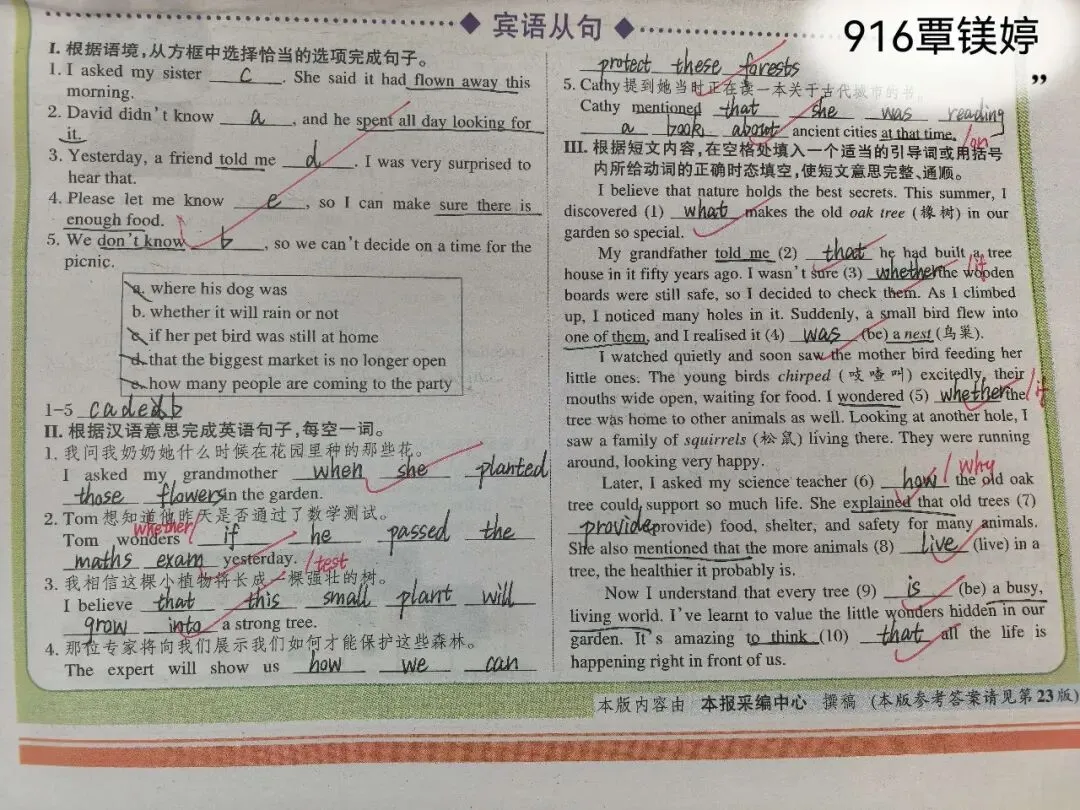 宾语从句
916覃镁婷
I. 根据语境,从方框中选择恰当的选项完成句子。
1. I asked my sister c . She said it had flown away this
morning.
2. David didn't know a , and he spent all day looking for
it.
3. Yesterday, a friend told me d . I was very surprised to
hear that.
4. Please let me know e , so I can make sure there is
enough food.
5. We don't know b , so we can't decide on a time for the
picnic.
a. where his dog was
b. whether it will rain or not
c. if her pet bird was still at home
d. that the biggest market is no longer open
e. how many people are coming to the party
1-5 cadeb
II. 根据汉语意思完成英语句子,每空一词。
1. 我问我奶奶她什么时候在花园里种的那些花。
I asked my grandmother when she planted
those flowers in the garden.
2. Tom 想知道他昨天是否通过了数学测试。
whether/
Tom wonders if he passed the
maths exam yesterday. /test
3. 我相信这棵小植物将长成一棵强壮的树。
I believe that this small plant will
grow into a strong tree.
4. 那位专家将向我们展示我们如何才能保护这些森林。
The expert will show us how we can
protect these forests
”
5. Cathy 提到她当时正在读一本关于古代城市的书。
Cathy mentioned that she was reading
a book about ancient cities at that time.
/on
III. 根据短文内容,在空格处填入一个适当的引导词或用括号
内所给动词的正确时态填空,使短文意思完整、通顺。
I believe that nature holds the best secrets. This summer, I
discovered (1) what makes the old oak tree (橡树) in our
garden so special.
My grandfather told me (2) that he had built a tree
house in it fifty years ago. I wasn't sure (3) whether /if the wooden
boards were still safe, so I decided to check them. As I climbed
up, I noticed many holes in it. Suddenly, a small bird flew into
one of them, and I realised it (4) was (be) a nest (鸟巢).
I watched quietly and soon saw the mother bird feeding her
little ones. The young birds chirped (吱喳叫) excitedly, their
mouths wide open, waiting for food. I wondered (5) whether the /if
tree was home to other animals as well. Looking at another hole, I
saw a family of squirrels (松鼠) living there. They were running
around, looking very happy.
Later, I asked my science teacher (6) how /why the old oak
tree could support so much life. She explained that old trees (7)
provide (provide) food, shelter, and safety for many animals.
She also mentioned that the more animals (8) live (live) in a
tree, the healthier it probably is.
Now I understand that every tree (9) is (be) a busy,
living world. I've learnt to value the little wonders hidden in our
garden. It's amazing to think (10) that all the life is
happening right in front of us.
本版内容由 本报采编中心 撰稿 (本版参考答案请见第23版)